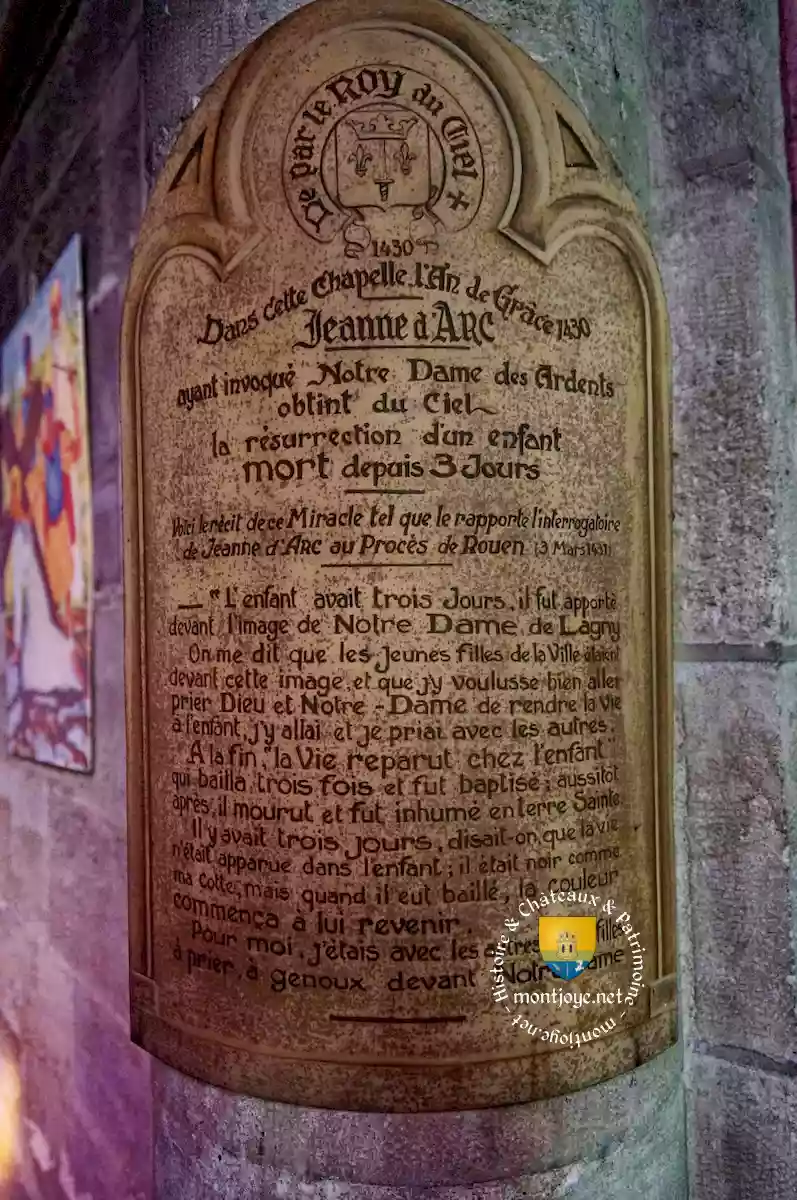 De par le Roy du Ciel +
1430
Dans cette Chapelle, l'An de Grâce 1430
Jeanne d'Arc
ayant invoqué Notre Dame des Ardents
obtint du Ciel
la résurrection d'un enfant
mort depuis 3 Jours
Voici le récit de ce Miracle tel que le rapporte l'interrogatoire
de Jeanne d'Arc au Procès de Rouen (3 Mars 1431)
— "L'enfant avait trois Jours, il fut apporté
devant l'image de Notre Dame de Lagny
On me dit que les Jeunes filles de la Ville étaient
devant cette image, et que j'y voulusse bien aller
prier Dieu et Notre-Dame de rendre la Vie
à l'enfant, j'y allai et je priai avec les autres.
A la fin, "la Vie reparut chez l'enfant"
qui bailla trois fois et fut baptisé ; aussitôt
après, il mourut et fut inhumé en terre Sainte
Il y avait trois jours, disait-on, que la vie
n'était apparue dans l'enfant ; il était noir comme
ma cotte, mais quand il eut baillé, la couleur
commença à lui revenir.
Pour moi, j'étais avec les autres filles
à prier, à genoux devant Notre Dame
Histoire & Châteaux & Patrimoine
montjoye.net
montjoye.net